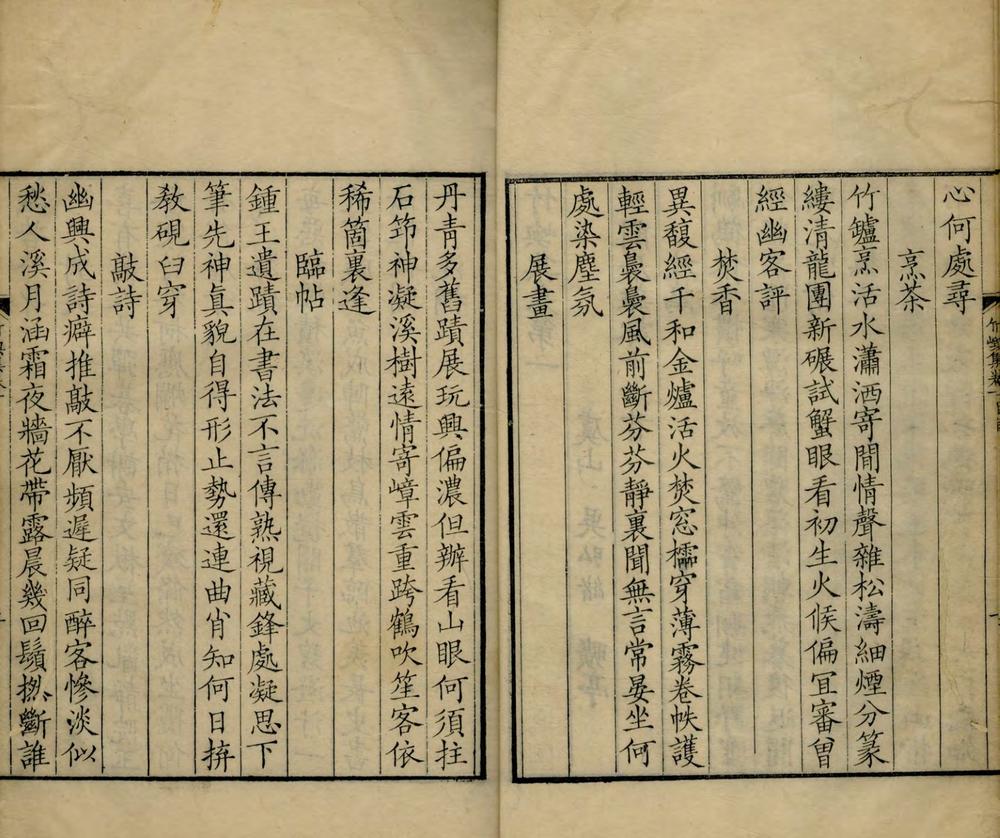 心何處尋
烹茶
竹鑪烹活水瀟洒寄閒情聲雜松濤細煙分篆
縷清龍團新碾試蟹眼看初生火候偏宜審曾
經幽客評
焚香
異馥經千和金爐活火焚窓櫺穿薄霧卷帙護
輕雲裊裊風前斷芬芬靜裏聞無言常晏坐何
處染塵氛
展畫
丹青多舊蹟展玩興偏濃但辦看山眼何須拄
石筇神凝溪樹遠情寄嶂雲重跨鶴吹笙客依
稀箇裏逢
臨帖
鍾王遺蹟在書法不言傳熟視藏鋒處凝思下
筆先神眞貌自得形止勢還連曲肖知何日拚
敎硯臼穿
敲詩
幽興成詩癖推敲不厭頻遲疑同醉客慘淡似
愁人溪月涵霜夜牆花帶露晨幾回鬚撚斷誰